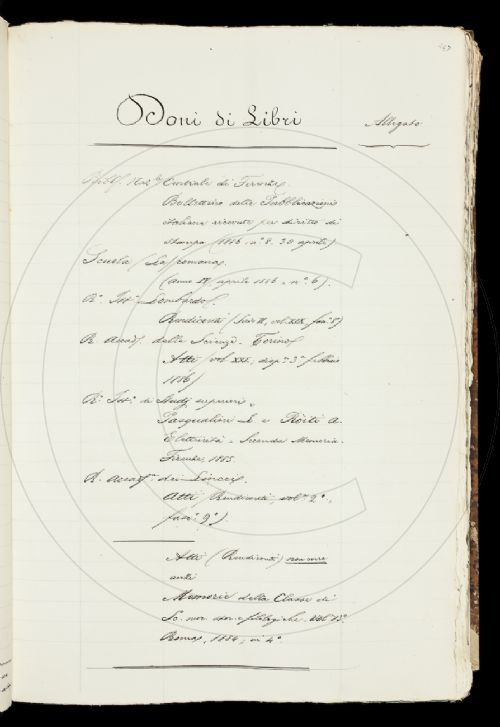 Doni di Libri
Allegato
Bibl. Naz.le Centrale di Firenze.
Bollettino delle Pubblicazioni
italiane ricevute per diritto di
stampa (1886, n.° 8. 30 aprile)
Scuola (La) romana.
(anno IV aprile 1886, n.° 6).
R.° Ist.° Lombardo.
Rendiconti (Serie II, vol. XIX, fasc. 8°)
R. Accad. delle Scienze. Torino.
Atti (vol. XXI, disp.a 3.a febbraio
1886)
R.° Ist.° di Studj superiori.
Pasqualini L. e Ròiti A.
Elettricità - Seconda Memoria.
Firenze, 1885.
R. Accad.a dei Lincei.
Atti, Rendiconti, vol.e 2°,
fasc.° 9°).
Atti (Rendiconti)
Memorie della Classe di
Sc. mor. stor. e filologiche. Vol. 13°.
Roma, 1884; in 4°.